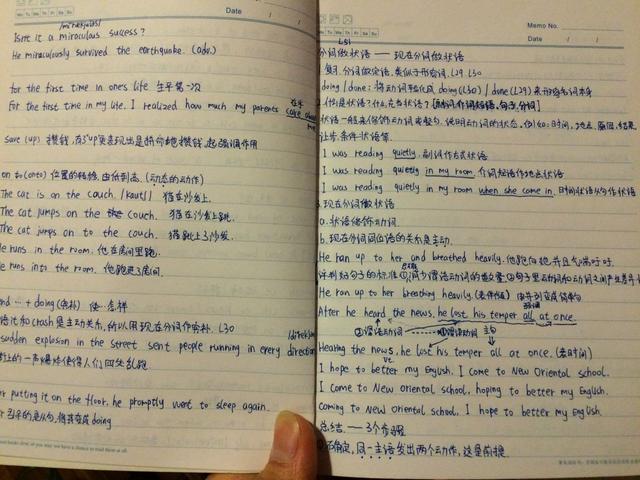 Date / /
/mɪ'rækjələs/
Isn't it a miraculous success?
He miraculously survived the earthquake. (adv.)
for the first time in one's life 生平第一次
For the first time in my life, I realized how much my parents care about
me
在乎
save (up) 攒钱
on to (onto)
(动态的动作)
The cat is on the couch. /kautʃ/ 猫在沙发上.
The cat jumps on the couch. 猫在沙发上跳.
The cat jumps on to the couch. 猫跳上了沙发.
He runs in the room. 他在房间里跑.
He runs into the room. 他跑进了房间.
+ doing
crash是主动关系, 所以用现在分词作宾补. L30
sudden explosion in the street sent people running in every direction
putting it on the floor, he promptly went to sleep again.
doing
Memo No.
Date / /
L31
分词做状语 —— 现在分词做状语
1. 复习. 分词做定语, 类似于形容词. L29 L30
doing / done: 将动词转化成 doing (L30) / done (L29) 来形容名词本身
2. 什么是状语? 什么充当状语? [副词, 介词短语, 句子, 分词]
状语一般来修饰动词或整句, 说明动词的状态, 例如: 时间, 地点, 原因, 结果,
让步, 条件状语等.
I was reading quietly. 副词作方式状语
I was reading quietly in my room. 介词短语作地点状语
I was reading quietly in my room when she came in. 时间状语从句作状语
3. 现在分词做状语
a. 状语修饰动词
b. 现在分词同位语的关系是主动.
He ran up to her and breathed heavily.
He ran up to her breathing heavily.
After he heard the news, he lost his temper all at once.
②谓语动词 ①谓语动词 主句
Hearing the news, he lost his temper all at once. (表时间)
vt.
I hope to better my English. I come to New Oriental school.
I come to New Oriental school, hoping to better my English.
Coming to New Oriental school, I hope to better my English.
总结. —— 3个步骤
确定, 同一主语发出两个动作, 这是前提.